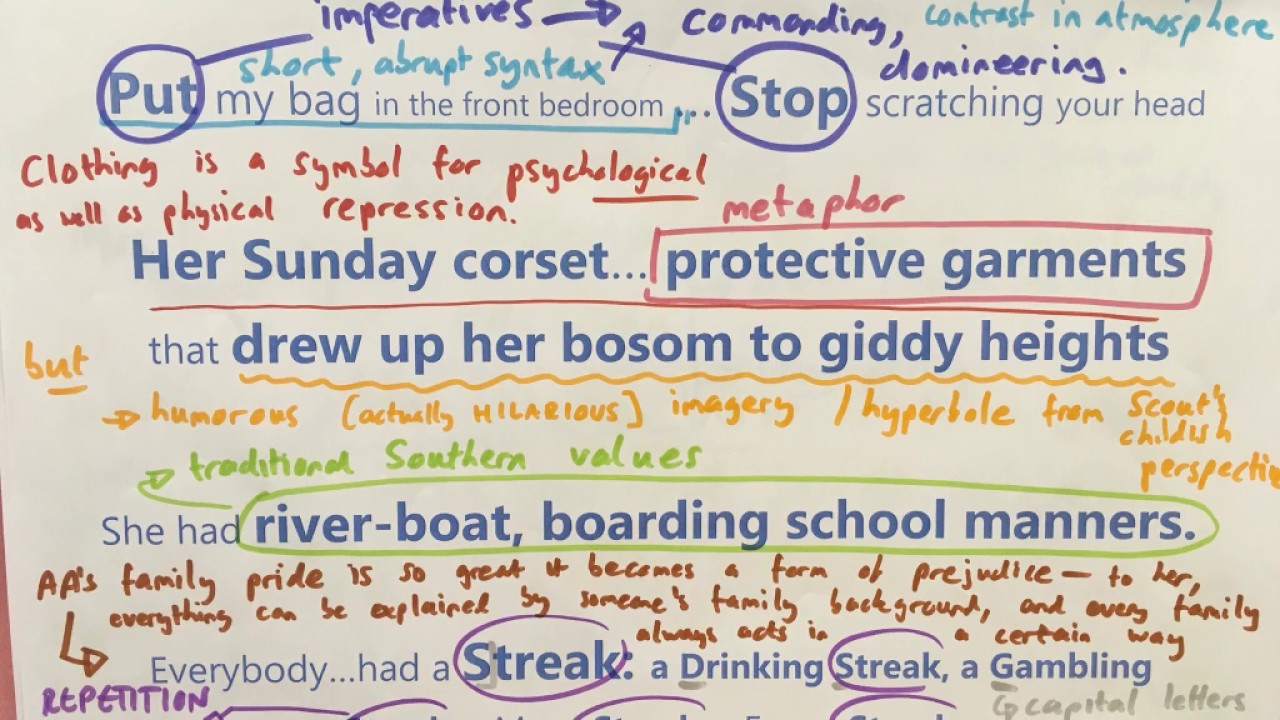 imperatives → commanding, contrast in atmosphere
short, abrupt syntax domineering.
Put my bag in the front bedroom ... Stop scratching your head
Clothing is a symbol for psychological
as well as physical repression.
metaphor
Her Sunday corset... protective garments
but that drew up her bosom to giddy heights
→ humorous [actually HILARIOUS] imagery / hyperbole from Scout's
childish
perspective
traditional Southern values
She had river-boat, boarding school manners.
AA's family pride is so great it becomes a form of prejudice — to her,
everything can be explained by someone's family background, and every family
always acts in a certain way
Everybody...had a Streak: a Drinking Streak, a Gambling
REPETITION capital letters